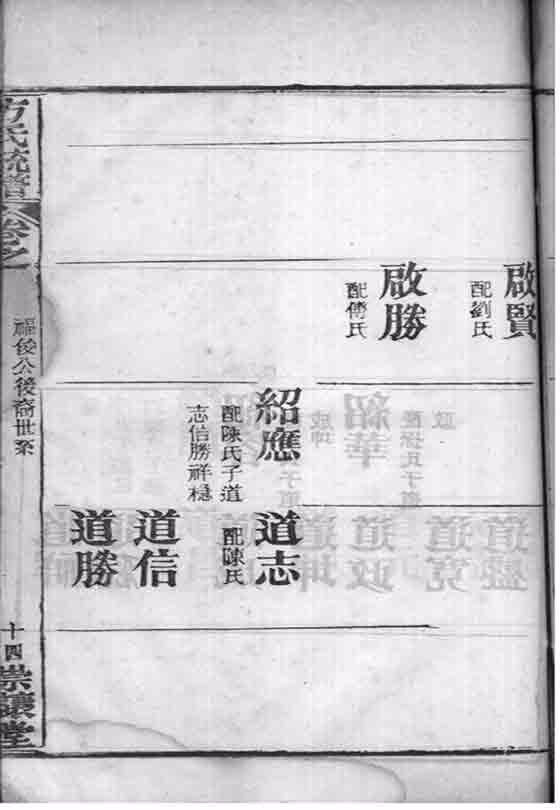 啟賢
配劉氏
啟勝
配傅氏
紹應
配陳氏子道
志信勝祥穩
道志
配陳氏
道信
道勝
方氏統譜
卷之
福俊公後裔世系
十四
崇讓堂